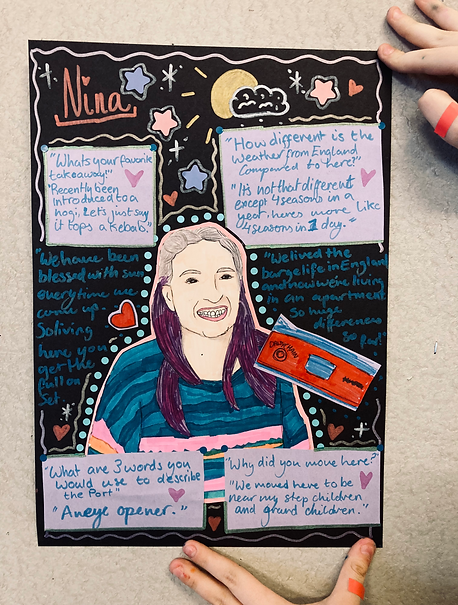 Nina
"Whats your favorite
takeaway!"
"Recently been
introduced to a
hagi, Lets just say
it tops a Kebab."
"How different is the
weather from England
Compared to here?"
"It's not that different
except 4 seasons in a
year, heres more like
4 seasons in 1 day."
"We have been
blessed with sun
everytime we
come up -
So living
here you
get the
full on
Set.
"We lived the
barge life in England
and now we're living
in an apartment
So huge
differences
So far!"
"What are 3 words you
would use to describe
the Port"
"An eye opener."
"Why did you move here?"
"We moved here to be
near my step children
and grand children."